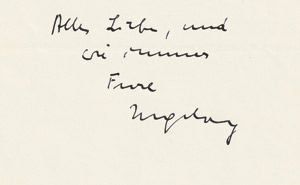 Alles Liebe, und
wie immer
Eure
Ingeborg